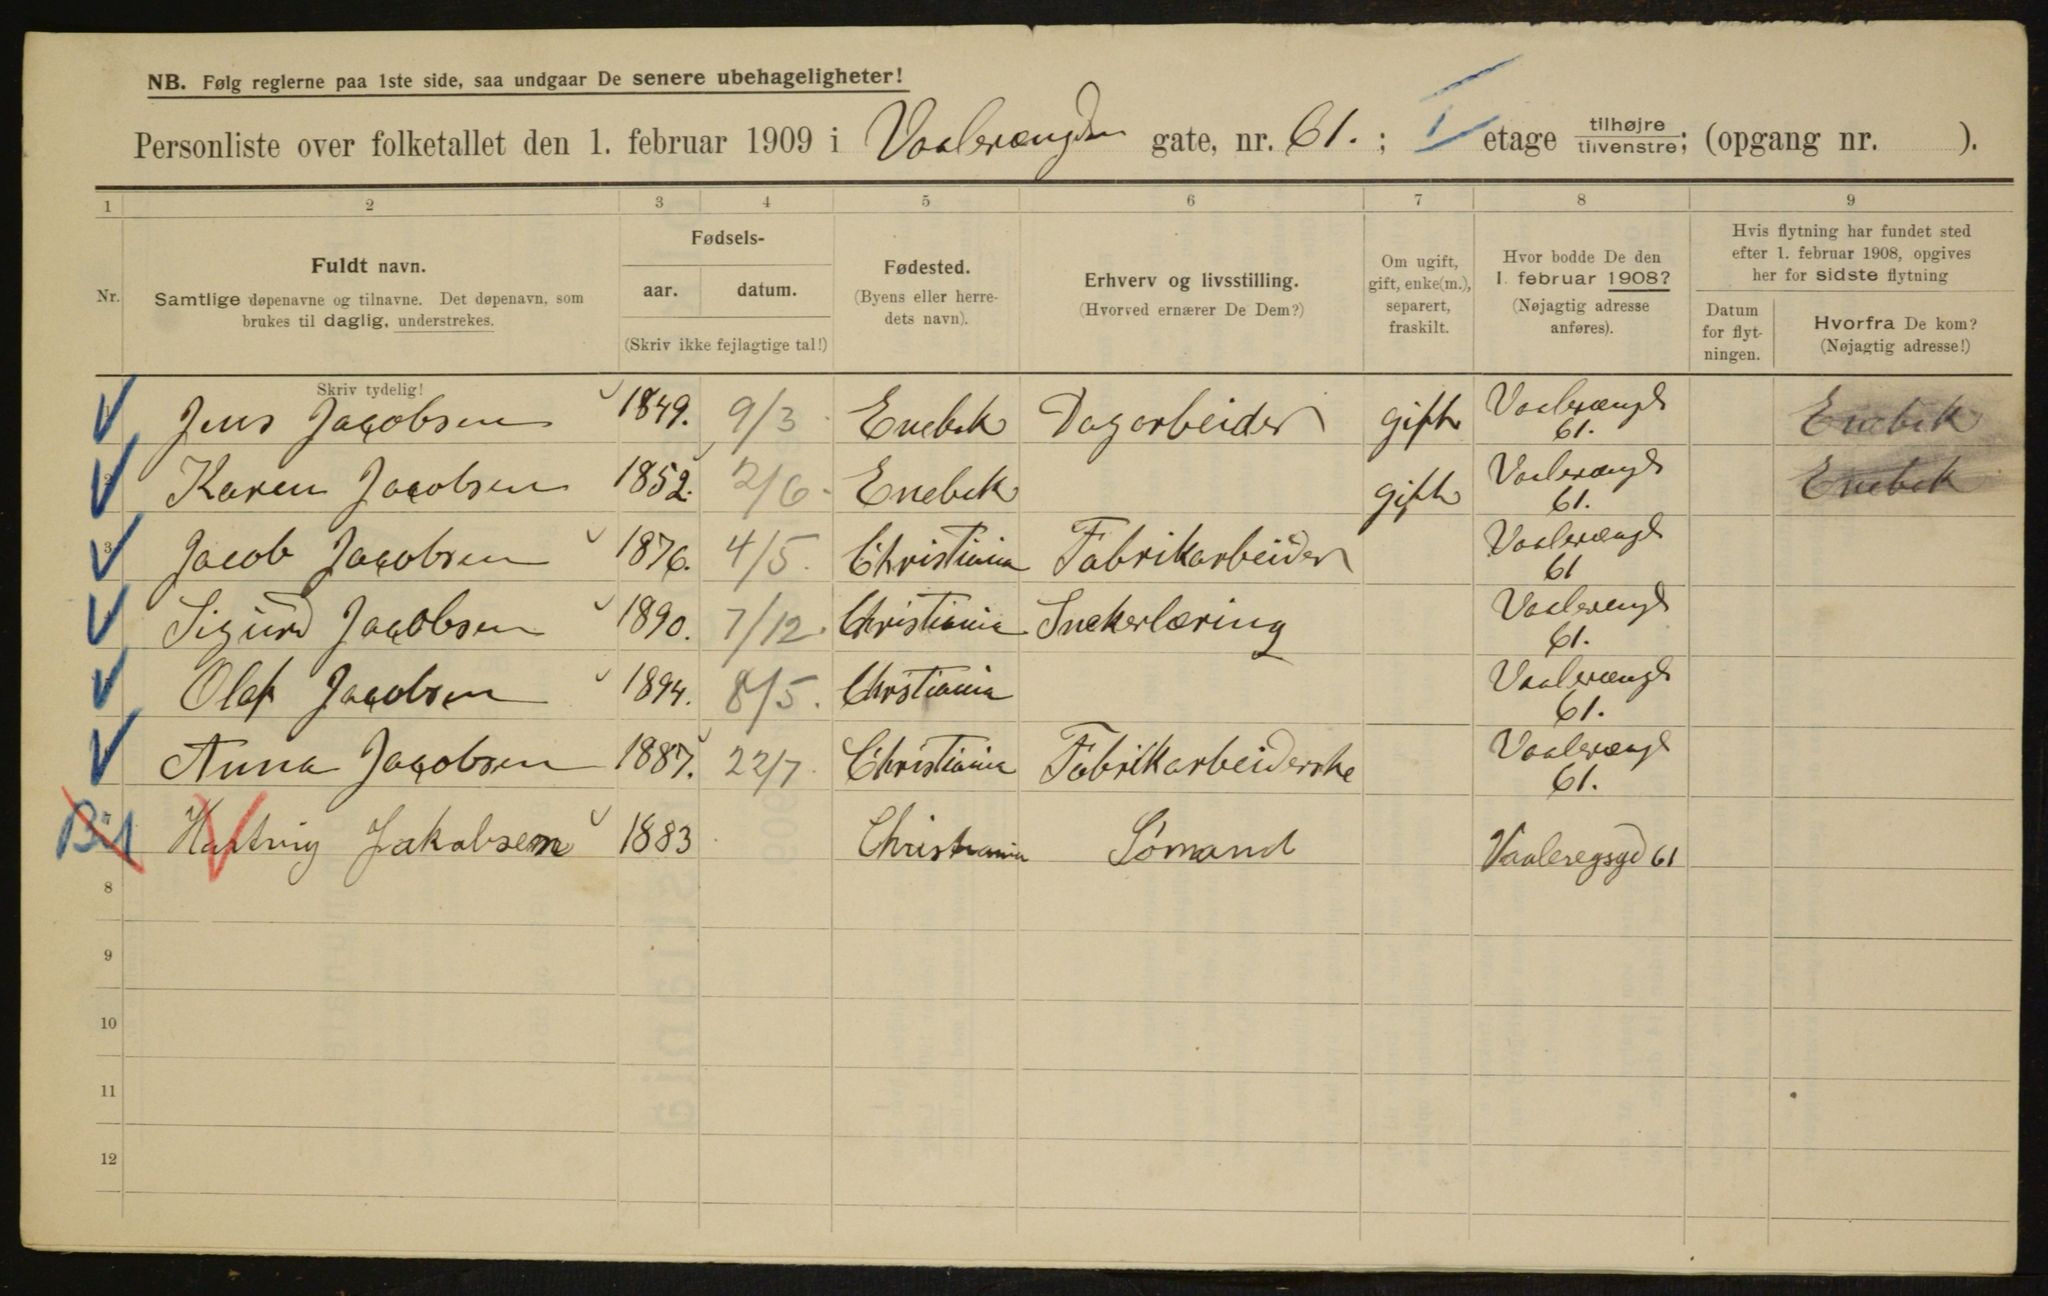 NB. Følg reglerne paa 1ste side, saa undgaar De senere ubehageligheter!
Personliste over folketallet den 1. februar 1909 i Vaalerængdn gate, nr. 61. ; I etage tilhøjre tilvenstre; (opgang nr. ).
1 2 3 4 5 6 7 8 9
Nr.
Fuldt navn.
Samtlige døpenavne og tilnavne. Det døpenavn, som
brukes til daglig, understrekes.
Skriv tydelig!
Fødsels-
aar. datum.
(Skriv ikke fejlagtige tal!)
Fødested.
(Byens eller herre-
dets navn).
Erhverv og livsstilling.
(Hvorved ernærer De Dem?)
Om ugift,
gift, enke(m.),
separert,
fraskilt.
Hvor bodde De den
1. februar 1908?
(Nøjagtig adresse
anføres).
Hvis flytning har fundet sted
efter 1. februar 1908, opgives
her for sidste flytning
Datum
for flyt-
ningen.
Hvorfra De kom?
(Nøjagtig adresse!)
Jens Jacobsen 1849. 9/3 Enebak Dagarbeider gift Vaalerængt 61. Enebak
2 Karen Jacobsen 1852. 2/6 Enebak gift Vaalerængt 61. Enebak
3 Jacob Jacobsen 1876. 4/5. Christiania Fabrikarbeider Vaalerængt 61
Sigurd Jacobsen 1890. 7/12. Christiania Snekerlæring Vaalerengt 61.
Olaf Jacobsen 1894. 8/5. Chrstiania Vaalerængt 61.
Anna Jacobsen 1887. 22/7. Christiania Fabrikarbeiderske Vaalerængt 61.
Hartvig Jakobsen 1883 Christiania Sømand Vaaleregsgd 61
8
9
10
11
12